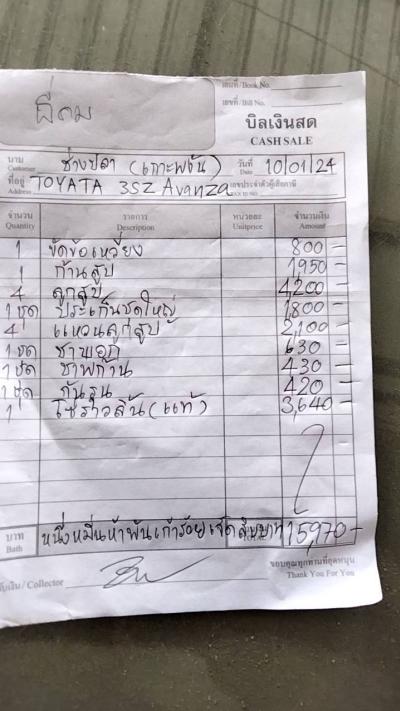 เล่มที่/Book No.
เลขที่/Bill No.
บิลเงินสด
CASH SALE
นาม Customer ช่างปลา (เกาะพงัน) วันที่ Date 10/01/24
ที่อยู่ Address TOYATA 3SZ Avanza เลขประจำตัวผู้เสียภาษี TAX ID NO.
จำนวน Quantity รายการ Description หน่วยละ Unitprice จำนวนเงิน Amount
1 ขัดข้อเหวี่ยง 800 -
1 ก้านสูบ 1950 -
4 ลูกสูบ 4,200 -
1 ชุด ประเก็นชุดใหญ่ 1,800 -
4 แหวนลูกสูบ 2,100 -
1 ชุด ชาพอก 630 -
1 ชุด ชาพก้าน 430 -
1 ชุด กันรุน 420 -
1 โซ่ราวลิ้น (แท้) 3,640 -
บาท Bath หนึ่งหมื่นห้าพันเก้าร้อยเจ็ดสิบบาท 15,970 -
รับเงิน / Collector
ขอบคุณทุกท่านที่อุดหนุน
Thank You For You